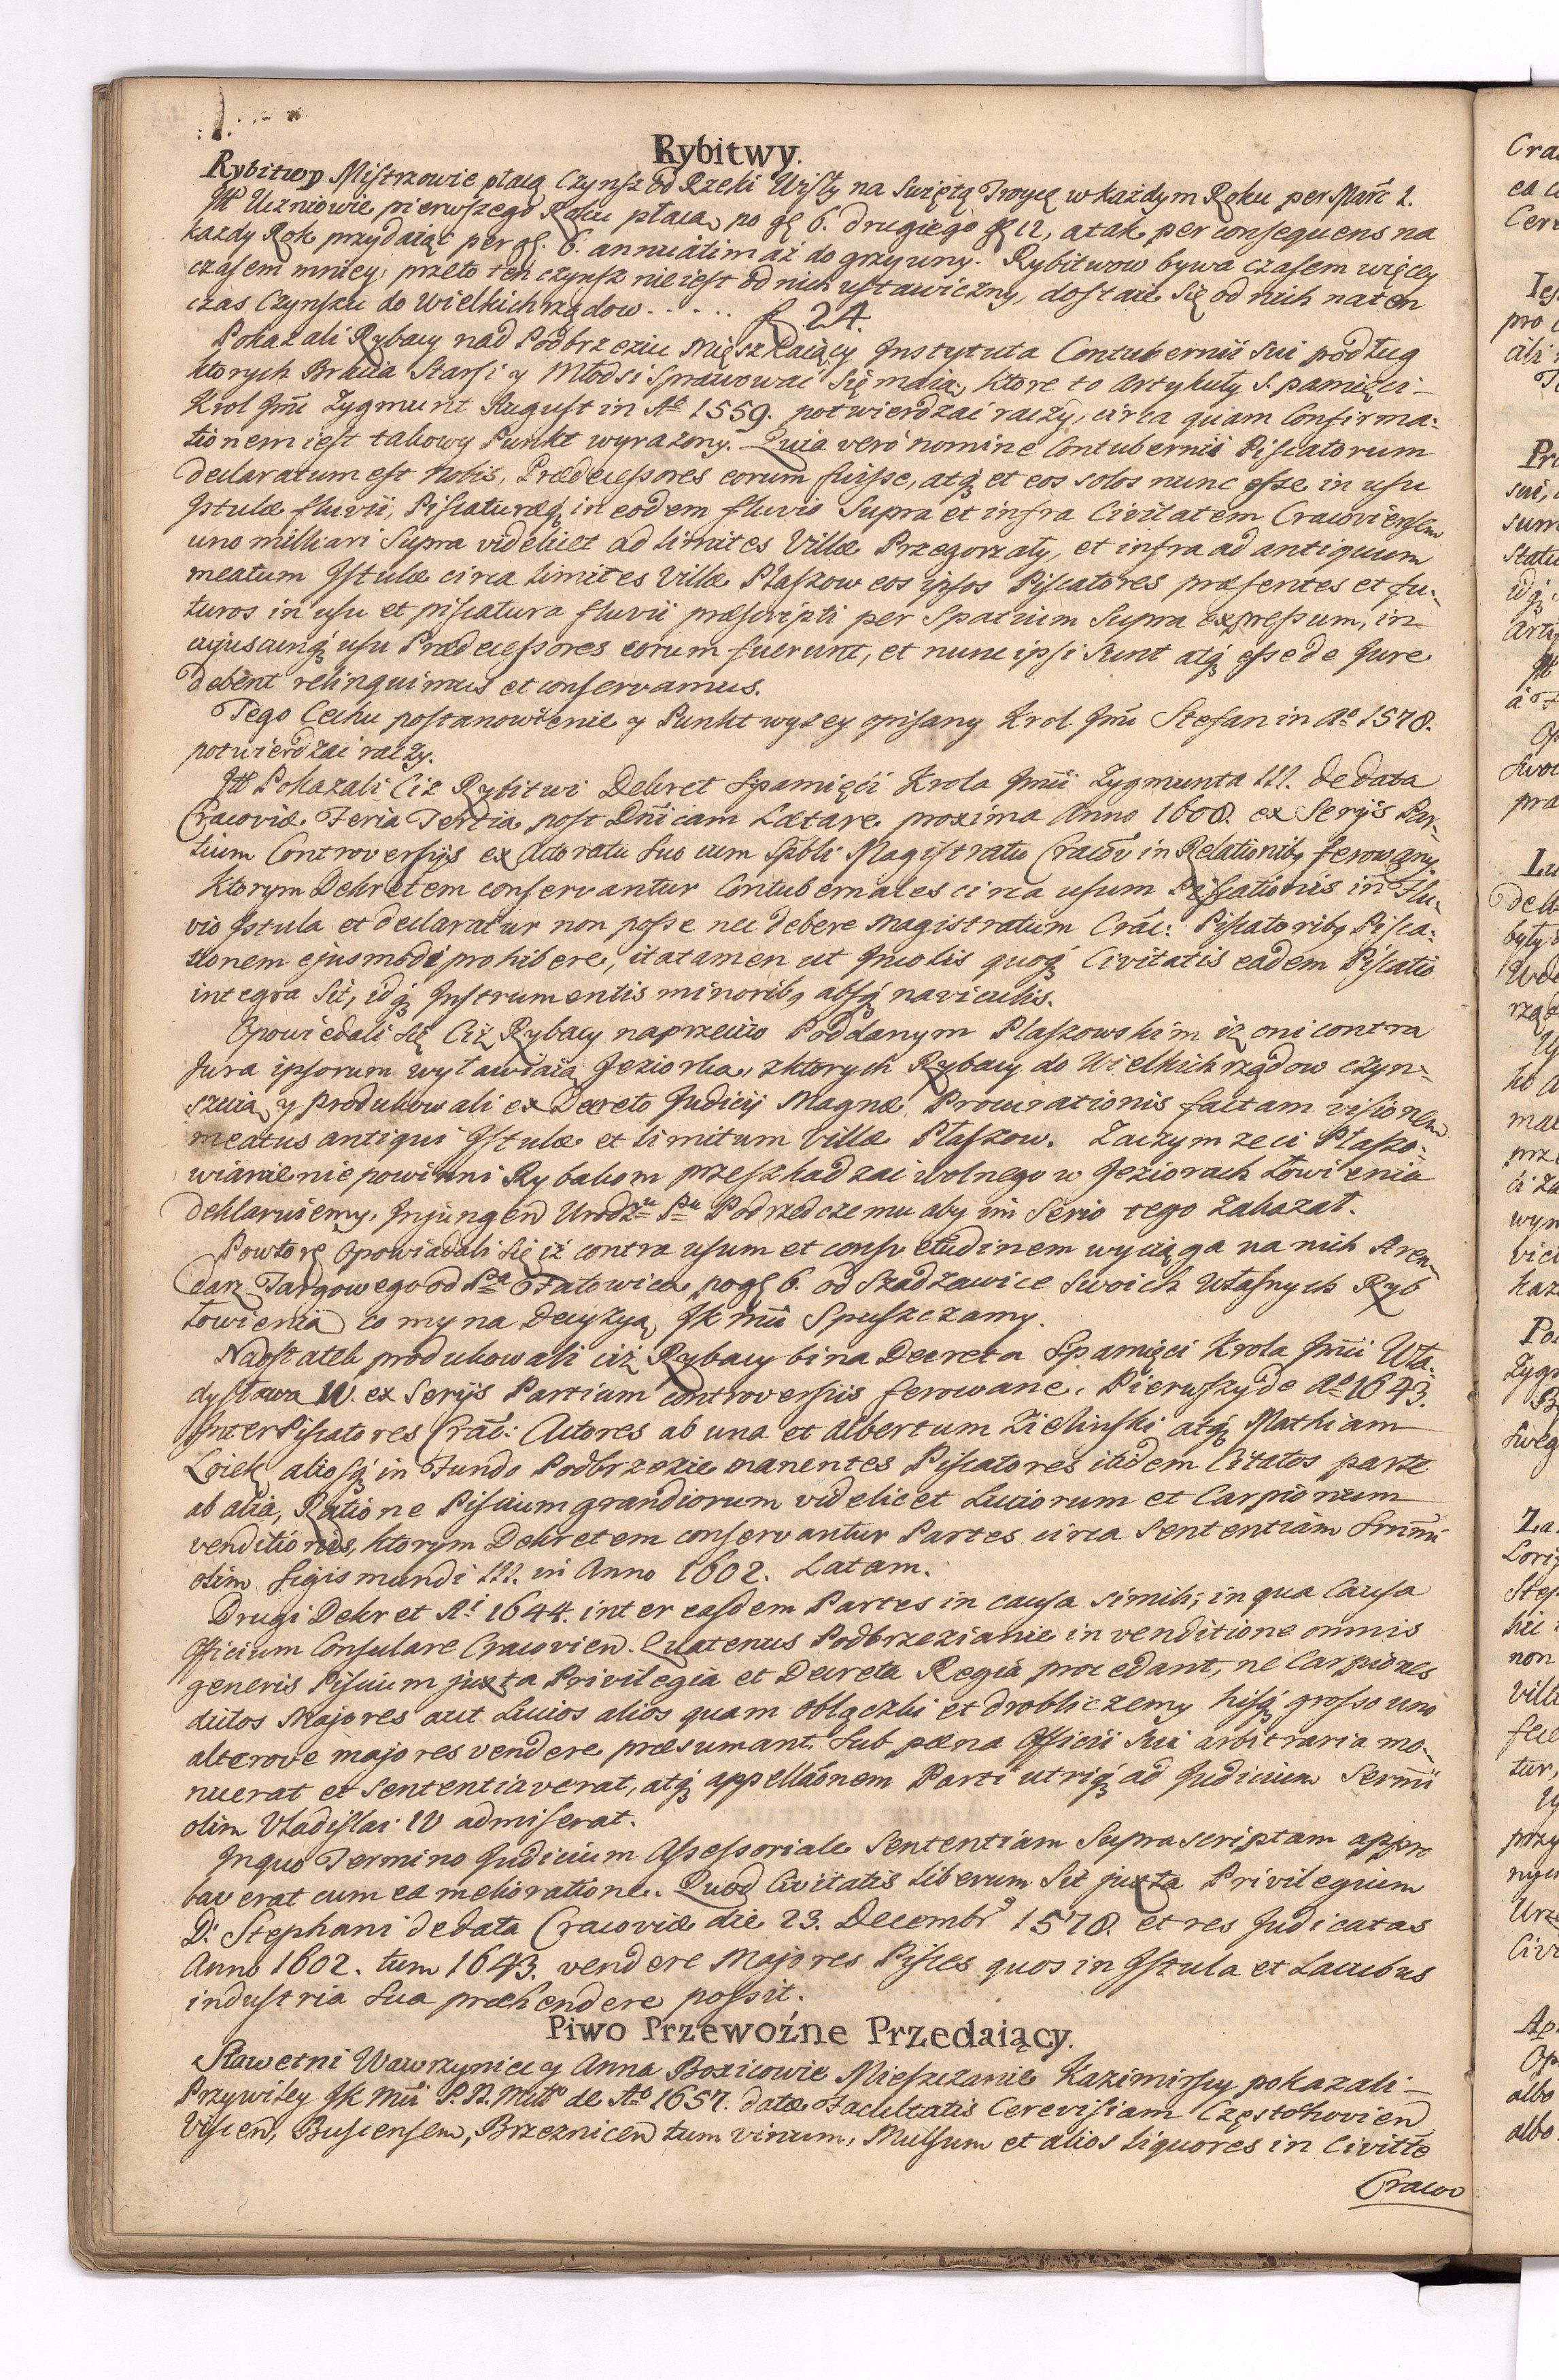 Rybitwy.
Rybitwy Mistrzowie płacą Czynsz od Rzeki Wisły na Swiętą Troycę w każdym Roku per Marc 2.
It Uczniowie pierwszego Roku płacą po gr 6. drugiego gr 12, a tak per consequens na
kazdy Rok przydaiąc per gr. 6. annuatim aż do grzywny. Rybitwow bywa czasem więcey
czasem mniey, przeto ten czynsz nie iest od nich ustawiczny, dostaie się od nich na ten
czas Czynszu do Wielkichrządow...... f 24.
Pokazali Rybacy nad Podbrzeziu Mięszkaiący Instytuta Contubernii sui podług
ktorych Bracia Starsi y Młodsi Sprawować się maią, które to Artykuły S. pamięci
Krol Jmc Zygmunt August in Ao 1559. potwierdzać raczył, circa quam Confirma:
tionem iest takowy Punkt wyrażony. Quia vero nomine Contubernii Piscatorum
declaratum est Nobis, Prædecessores eorum fuisse, atq et eos solos nunc esse in usu
Istulæ fluvii, Piscaturæq in eodem fluvio Supra et infra Civitatem Cracoviensem
uno milliari Supra videlicet ad limites Villæ Przegorzały, et infra ad antiquum
meatum Istulæ circa limites Villæ Płaszow eos ipsos Piscatores præsentes et fu-
turos in usu et piscatura fluvii præscripti per Spatium Supra expressum, in
cujuscunq usu Prædecessores eorum fuerunt, et nunc ipsi sunt atq esse de Jure
debent relinquimus et conservamus.
Tego Cechu postanowienie y Punkt wyzey opisany Krol Jmc Stefan in Ao 1578.
potwierdzać raczył.
It Pokazali Ciż Rybitwi Dekret S pamięci Krola Jmci Zygmunta III. de data
Cracoviæ Feria Tertia post Dnicam Lætare proxima Anno 1608. ex Serijs Par-
tium Controversijs ex Actoratu suo cum Spbli Magistratu Cracov in Relationib ferowany
Ktorym Dekretem conservantur Contubernales circa usum Piscationis in Flu-
vio Istula et declaratur non posse nec debere Magistratum Crac: Piscatorib Pisca:
tionem ejusmodi prohibere, ita tamen ut Incolis quoq Civitatis eadem Piscatio
integra sit, idq Instrumentis minorib absq naviculis.
Opowiedali się Ciż Rybacy naprzeciw Poddanym Płaszowskim iż oni contra
Jura ipsorum wyławiaią Jeziorka, z ktorych Rybacy do Wielkichrządow czyn-
szuią, y produkowali ex Decreto Judicij Magnæ Procurationis factam visionem
meatus antiqui Istulæ et limitum Villæ Płaszow. Zaczym ze ci Płaszo-
wianie nie powinni Rybakom przeszkadzać wolnego w Jeziorach Łowienia
deklaruiemy, Injungen Urodzu Pu Podrzędczemu aby im Serio tego zakazał.
Powtore Opowiadali się iż contra usum et consvetudinem wyciąga na nich Aren-
darz Targowego od Pa Fatowicza po gr 6. od Szadzawice swoich własnych Ryb
łowienia co my na Decyzyą JK Mci Spuszczamy.
Naostatek produkowali ciż Rybacy bina Decreta S pamięci Krola Jmci Wła-
dysława IV. ex Serijs Partium controversiis ferowane. Pierwszy de Ao 1643.
Inter Piscatores Crac: Actores ab una et Albertum Zieliński atq Mathiam
aliosq in Fundo Podbrzezie manentes Piscatores itidem Citatos parte
ab alia, Ratione Piscium grandiorum videlicet Luciorum et Carpionum
venditionis, ktorym Dekretem conservantur Partes circa Sententiam Srmi
olim Sigismundi III. in Anno 1602. Latam.
Drugi Dekret Ai 1644. inter easdem Partes in causa simili; in qua Causa
Officium Consulare Cracovien. Quatenus Podbrzezianie in venditione omnis
generis Piscium juxta Privilegia et Decreta Regia procedant, ne Carpiones
dictos Majores aut Lucios alios quam obłączki et drobliczemy hisq grosso uno
alterove majores vendere præsumant. Sub pæna Officii sui arbitraria mo-
nuerat et sententiaverat, atq appellaonem Parti utriq ad Judicium Sermi
olim Vladislai IV admiserat.
In quo Termino Judicium Assessoriale Sententiam Suprascriptam appro
baverat cum ea melioratione. Quod Civitatis liberum Sit juxta Privilegium
D. Stephani de data Cracoviæ die 23. Decembr 1578. et res Judicatas
Anno 1602. tum 1643. vendere Majores Pisces quos in Istula et Lacubus
industria Sua præhendere possit.
Piwo Przewoźne Przedaiący.
Sławetni Wawrzyniec y Anna Boxicowie Mieszczanie Kazimirscy pokazali
Przywiley JK Mci P. N. Mtto de Ao 1657. datæ Facultatis Cerevisiam Częstochovien
Viscen, Buscensem, Brzeznicen tum vinum, Mulsum et alios liquores in Civitte
Cracov